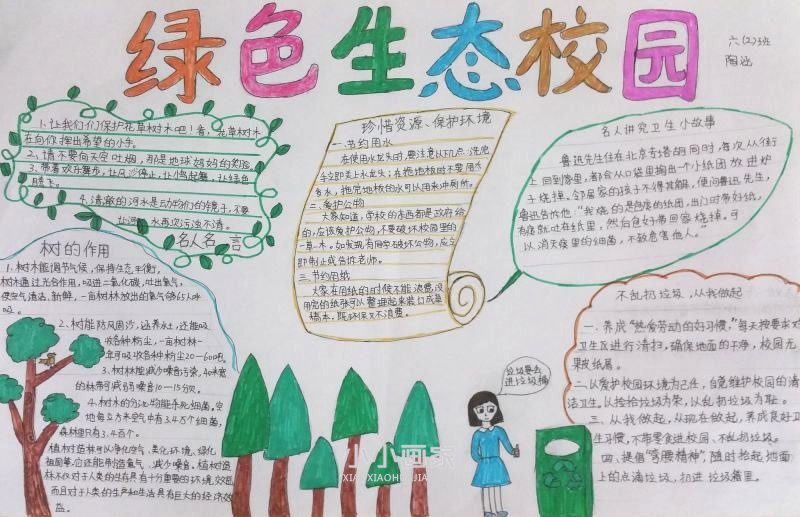 绿色生态校园
六(2)班
陶涵
1.让我们保护花草树木吧!看,花草树木
在向你挥出希望的小手。
2、请不要向天空吐烟,那是地球妈妈的笑脸。
3.带着欢乐舞步,让风沙停止,让小鸟起舞,让绿色
腾飞。
4.清澈的河水是动物们的镜子,不要
让河水再次污浊不清。
名人名言
珍惜资源、保护环境
一.节约用水
在使用水龙头时,要注意以下几点:洗完
手立即关上水龙头;在拖地板时不要用水
多水,拖完地板的水可以用来冲厕所。
二.爱护公物
大家知道,学校的东西都是政府给
的,应该爱护公物,不要破坏校园里的
一草一木。如发现有同学破坏公物,应立
即制止或告诉老师。
三.节约用纸
大家在用纸的时候不能浪费,没
用完的纸张可以整理起来装订成草
稿本,既环保又不浪费。
名人讲究卫生小故事
鲁迅先生住在北京专塔胡同时,每次从街
上回到家里,都会从口袋里掏出一个小纸团放进炉
子烧掉。邻居家的孩子不得其解,便问鲁迅先生,
鲁迅告诉他:"我烧的是包痰的纸团,出门时带好纸,
有痰就吐在纸里,然后包好带回家烧掉。可
以消灭痰里的细菌,不致危害他人。"
树的作用
1.树木能调节气候,保持生态平衡,
树木通过光合作用,吸进二氧化碳,吐出氧气,
使空气清洁、新鲜,一亩树木放出的氧气够65人呼
吸。
2.树能防风固沙,涵养水土,还能吸
收各种粉尘,一亩树林一
年可吸收各种粉尘20—60吨。
3.树林能减少噪音污染,40米宽
的林带可减弱噪音10—15分贝。
4.树木的分泌物能杀死细菌。空
地每立方米空气中有3.4万个细菌,
森林里只有3.4百个。
植树造林可以净化空气,美化环境、绿化
祖国等,它还能制造氧气、减少噪音,植树造
林不仅对于人类的生存具有十分重要的环境效益,
而且对于人类的生产和生活具有巨大的经济效
益。
垃圾要丢
进垃圾桶
不乱扔垃圾,从我做起
一.养成"热爱劳动的好习惯,"每天按要求对
卫生区进行清扫,确保地面的干净,校园无
果皮纸屑。
二.以爱护校园环境为己任,自觉维护校园的清
洁卫生。以捡拾垃圾为荣,以乱扔垃圾为耻。
三.从我做起,从现在做起,养成良好卫
生习惯,不带零食进校园、不乱扔垃圾。
四、提倡"弯腰精神",随时拾起地面
上的点滴垃圾,扔进垃圾箱里。
小小画家
XIAOXIAOHUAJIA